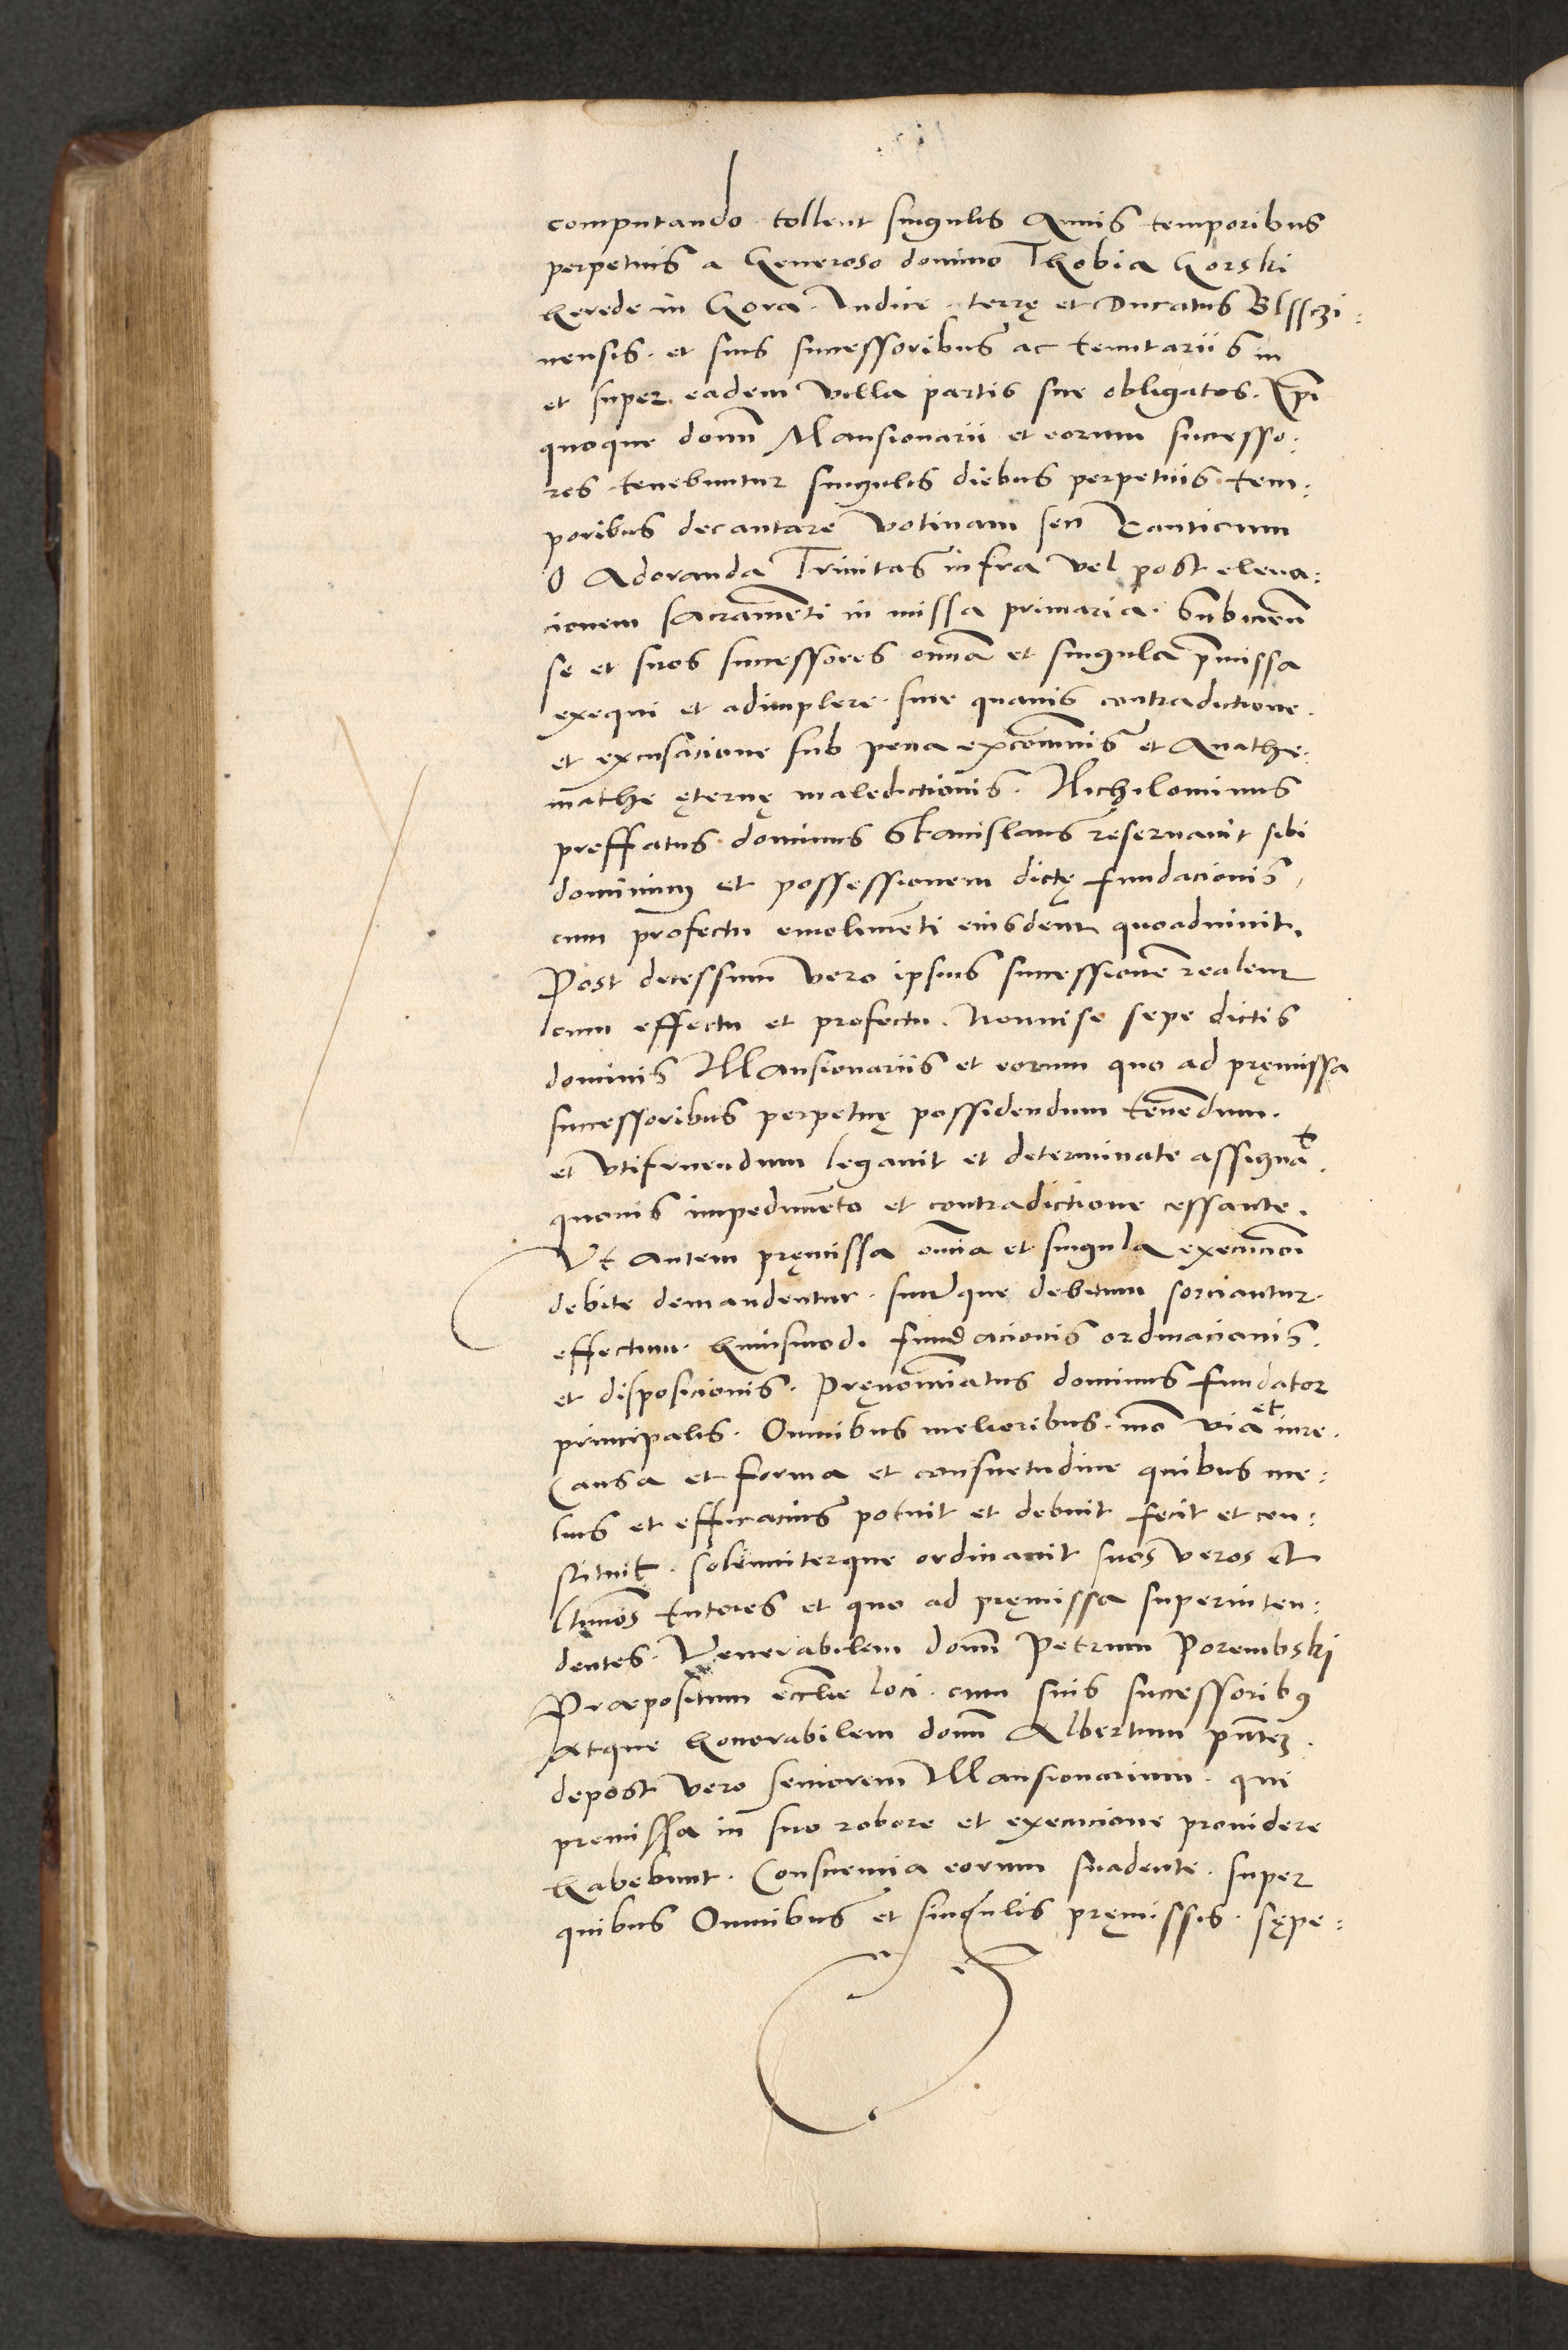 computando tollent singulis Annis temporibus
perpetuis a Generoso domino Thobia Gorski
herede in Gora. Iudice terrę et Ducatus Osszi:
nensis. et suis successoribus ac tenutariis in
et super eadem villa partis sue obligatos. Ipi
quoque domi Mansionarii et eorum successo:
res tenebuntur singulis diebus perpetuis tem:
poribus decantare votiuam seu Canticum
O Adoranda Trinitas infra vel post eleua:
cionem sacramēti in missa primaria. Subicien
se et suos successores omīa et singula p̄missa
exequi et adimplere. sine quauis contradictione.
et excusacione sub pena excomunis et Anathe:
mathe ęternę maledictionis. Nichilominus
preffatus dominus Stanislaus reseruauit sibi
dominium et possessionem dictę fundacionis,
cum profectu emolimēti eiusdem quoaduiuit.
Post decessum vero ipsius successionē realem
cum effectu et profectu. nonnise sepe dictis
dominis Mansionariis et eorum quo ad pręmissa
successoribus perpetuę possidendum tenēdum.
et vtifruendum legauit et determinate assignat.
quouis impedimēto et contradictione cessante.
Vt autem pręmissa omīa et singula execucioni
debite demandentur. suumque debitum sorciantur.
effectum. huiusmodi fundacionis ordinacionis.
et disposicionis. Pręnomīatus dominus fundator
principalis. Omnibus melioribus. mō via et iure.
Causa et forma et consuetudine quibus me:
lius et efficacius potuit et debuit fecit et con:
stituit. solemniterque ordinauit suos veros et
ltimos tutores et quo ad pręmissa superinten:
dentes. Venerabilem domi Petrum Porembski
Præpositum ecclie loci. cum suis successoribꝰ
Atque honorabilem domi Albertum pn̄tem.
depost vero seniorem Mansionarium. qui
premissa in suo robore et execucione prouidere
habebunt. Consciencia eorum suadente. super
quibus Omnibus et singulis pręmissis. sępe: